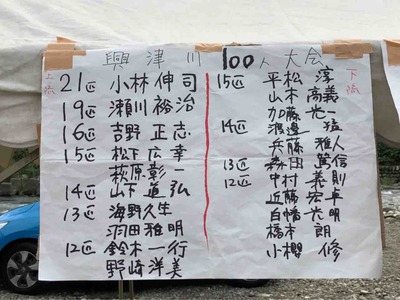 興津川 100人大会
上流
21匹 小林 伸司
19匹 瀬川 裕治
16匹 吉野 正志
15匹 松下 広幸
萩原 彰一
14匹 山下 道弘
13匹 海野 久生
羽田 雅明
12匹 鈴木 一行
野崎 洋美
下流
15匹 平松 淳
山本 高義
加藤 光一
14匹 渡邊 猛
兵藤 雅人
森田 篤信
13匹 中村 義則
12匹 近藤 宏卓
白幡 光明
橋本 朗
小櫻 修